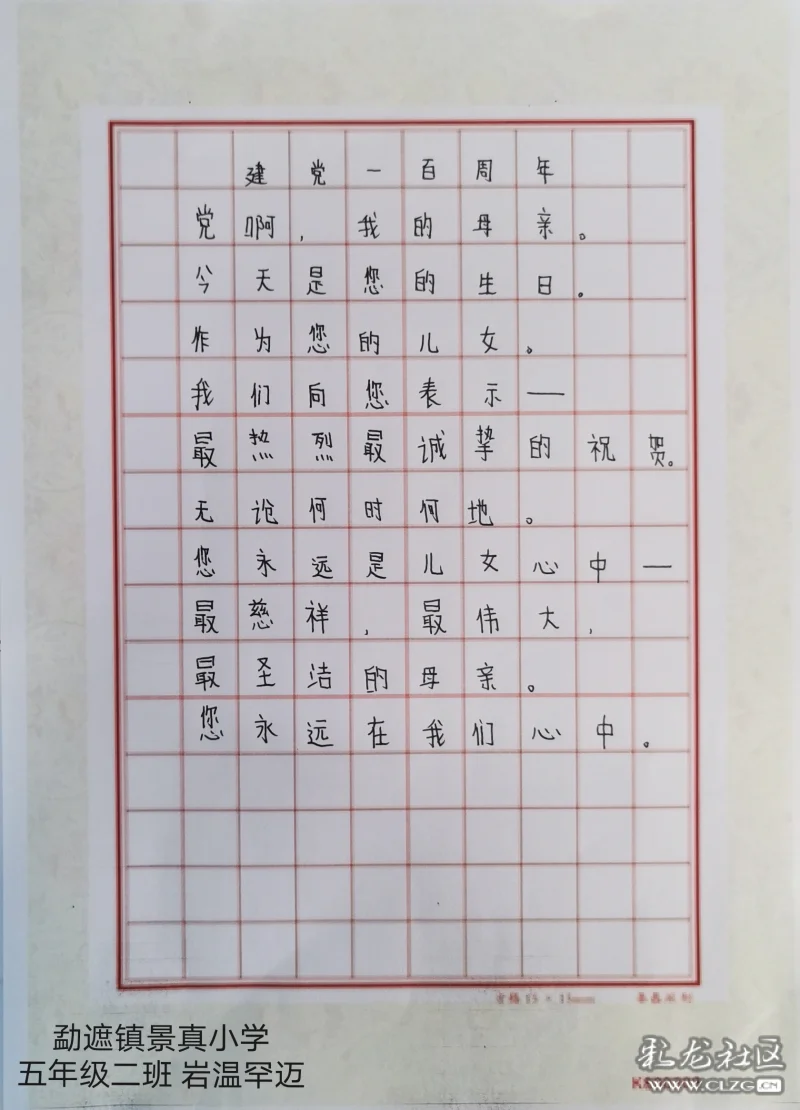 建党一百周年
党啊，我的母亲。
今天是您的生日。
作为您的儿女。
我们向您表示——
最热烈最诚挚的祝贺。
无论何时何地。
您永远是儿女心中—
最慈祥，最伟大，
最圣洁的母亲。
您永远在我们心中。
方格15×15mm
勐遮镇景真小学
五年级二班 岩温罕迈
彩龙社区
WWW.CLZG.CN